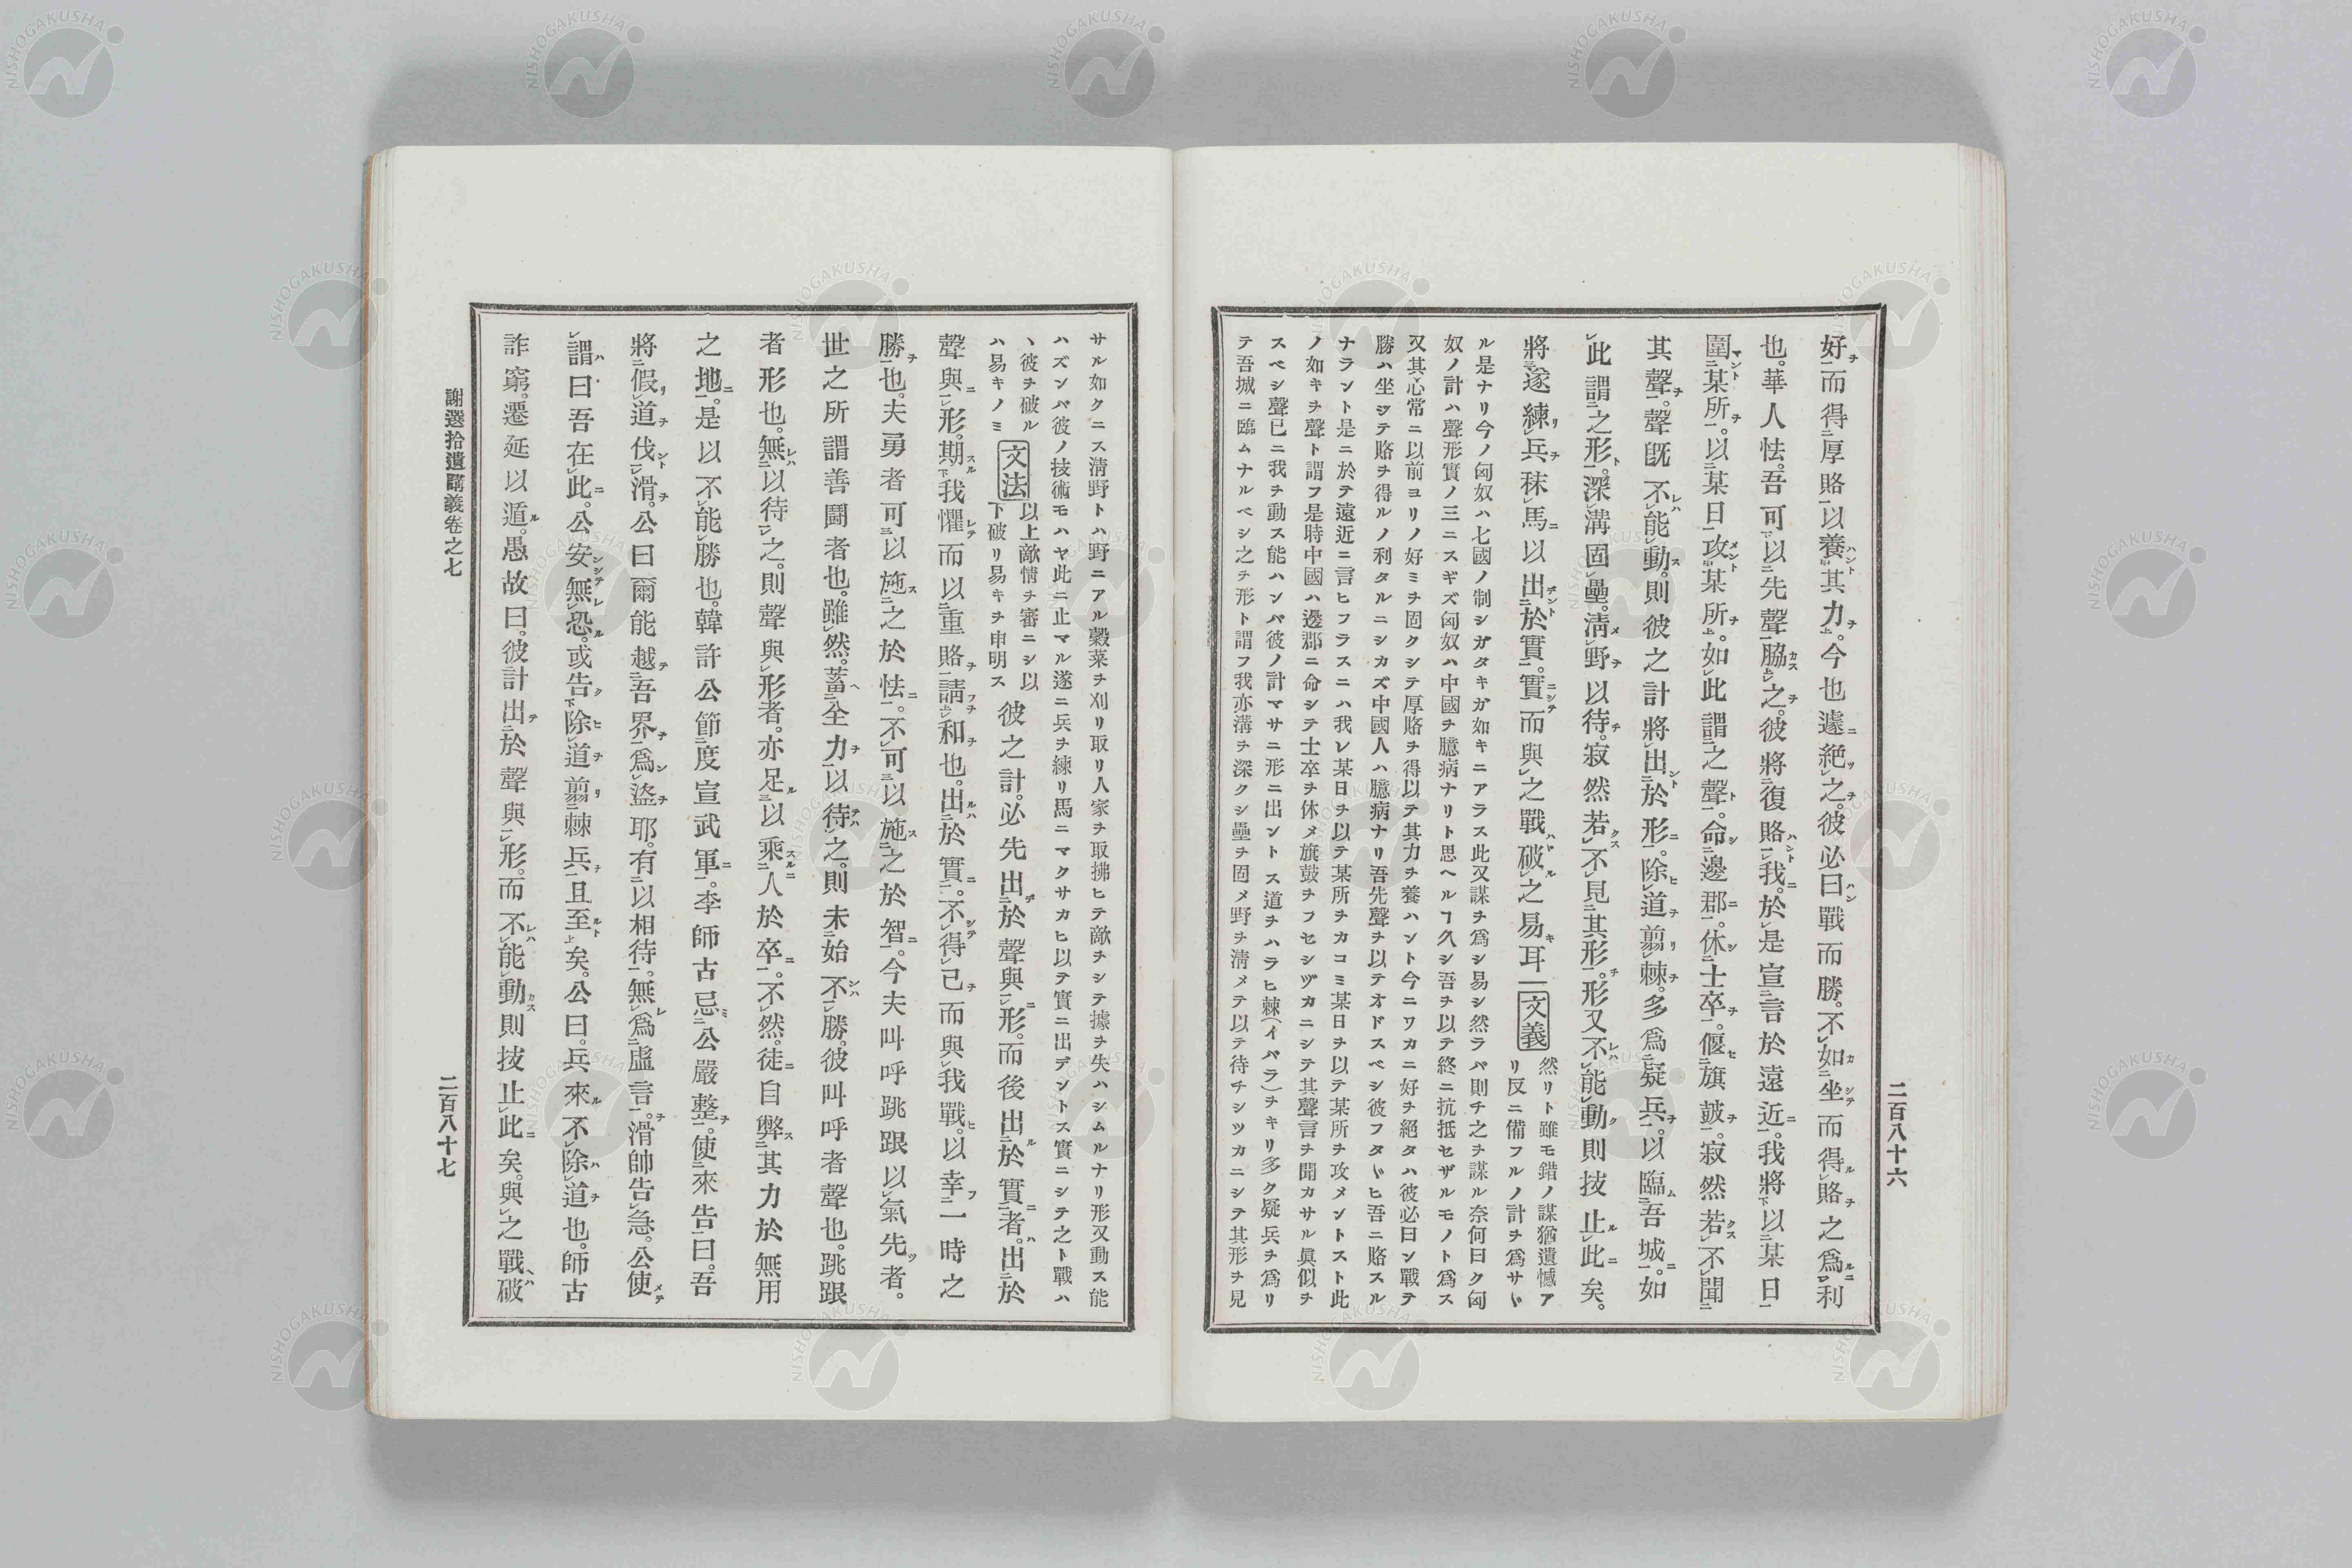 二百八十六
好而得厚賂以養其力。今也遽絶之。彼必曰戰而勝。不如坐而得賂之爲利
也。華人怯。吾可以先聲脇之。彼將復賂我。於是宣言於遠近。我將以某日
圍某所。以某日攻某所。如此謂之聲。命邊郡。休士卒。偃旗鼓。寂然若不聞
其聲。聲既不能動。則彼之計將出於形。除道翦棘。多爲疑兵。以臨吾城。如
此謂之形。深溝固壘。淸野以待。寂然若不見其形。形又不能動則技止此矣。
將遂練兵秣馬以出於實。實而與之戰破之易耳
文義
然リト雖モ錯ノ謀猶遺憾ア
リ反ニ備フルノ計ヲ爲サヽ
ル是ナリ今ノ匈奴ハ七國ノ制シガタキガ如キニアラス此又謀ヲ爲シ易シ然ラバ則チ之ヲ謀ル奈何曰ク匈
奴ノ計ハ聲形實ノ三ニスギズ匈奴ハ中國ヲ臆病ナリト思ヘルヿ久シ吾ヲ以テ終ニ抗抵セザルモノト爲ス
又其心常ニ以前ヨリノ好ミヲ固クシテ厚賂ヲ得以テ其力ヲ養ハント今ニワカニ好ヲ絕タハ彼必曰ン戰テ
勝ハ坐シテ賂ヲ得ルノ利タルニシカズ中國人ハ臆病ナリ吾先聲ヲ以テオドスベシ彼フタヽヒ吾ニ賂スル
ナラント是ニ於テ遠近ニ言ヒフラスニハ我レ某日ヲ以テ某所ヲカコミ某日ヲ以テ某所ヲ攻メントスト此
ノ如キヲ聲ト謂フ是時中國ハ邊郡ニ命シテ士卒ヲ休メ旗鼓ヲフセシヅカニシテ其聲言ヲ聞カサル眞似ヲ
スベシ聲已ニ我ヲ動ス能ハンバ彼ノ計マサニ形ニ出ントス道ヲハラヒ棘(イバラ)ヲキリ多ク疑兵ヲ爲リ
テ吾城ニ臨ムナルベシ之ヲ形ト謂フ我亦溝ヲ深クシ壘ヲ固メ野ヲ淸メテ以テ待チシツカニシテ其形ヲ見
サル如クニス淸野トハ野ニアル穀菜ヲ刈リ取リ人家ヲ取拂ヒテ敵ヲシテ據ヲ失ハシムルナリ形又動ス能
ハズンバ彼ノ技術モハヤ此ニ止マル遂ニ兵ヲ練リ馬ニマクサカヒ以テ實ニ出デントス實ニシテ之ト戰ハ
ヽ彼ヲ破ル
ハ易キノミ
文法
以上敵情ヲ審ニシ以
下破リ易キヲ申明ス
彼之計。必先出於聲與形。而後出於實者。出於
聲與形。期我懼而以重賂請和也。出於實。不得已而與我戰。以幸一時之
勝也。夫勇者可以施之於怯。不可以施之於智。今夫叫呼跳踉以氣先者。
世之所謂善鬪者也。雖然。蓄全力以待之。則未始不勝。彼叫呼者聲也。跳踉
者形也。無以待之。則聲與形者。亦足以乘人於卒。不然。徒自弊其力於無用
之地。是以不能勝也。韓許公節度宣武軍。李師古忌公嚴整。使來告曰。吾
將假道伐滑。公曰爾能越吾界。爲盜耶。有以相待。無爲虛言。滑帥告急。公使
謂曰吾在此。公安無恐。或告除道翦棘兵且至矣。公曰。兵來不除道也。師古
詐窮。遷延以遁。愚故曰。彼計出於聲與形。而不能動則技止此矣。與之戰破
謝選拾遺講義卷之七
二百八十七